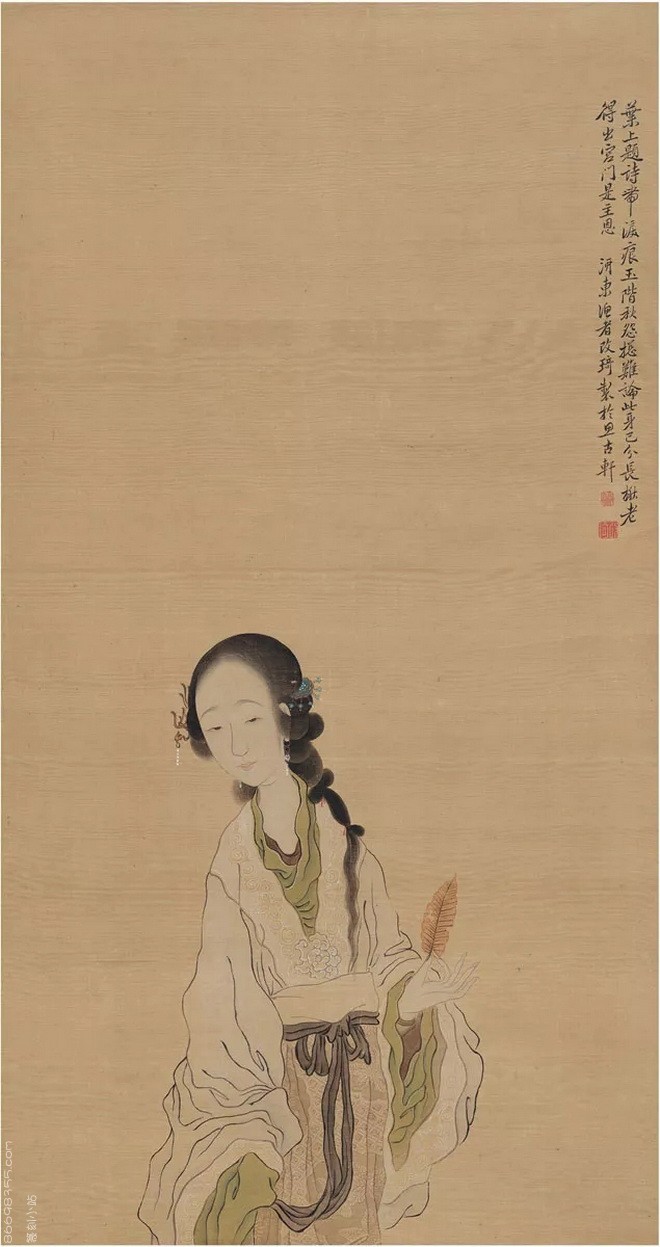 葉上題詩帶淚痕玉階秋怨總難論此身已分長楸老
得出宮门是主恩　泖東漁者改琦製於思古軒
86698355.com
篆刻小站